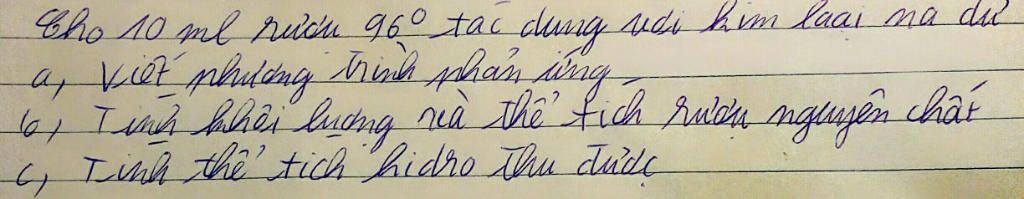 Cho 10 ml rượu 96° tác dụng với kim loại na dư
a, Viết phương trình phản ứng
b, Tính khối lượng và thể tích rượu nguyên chất
c, Tính thể tích hidro thu được